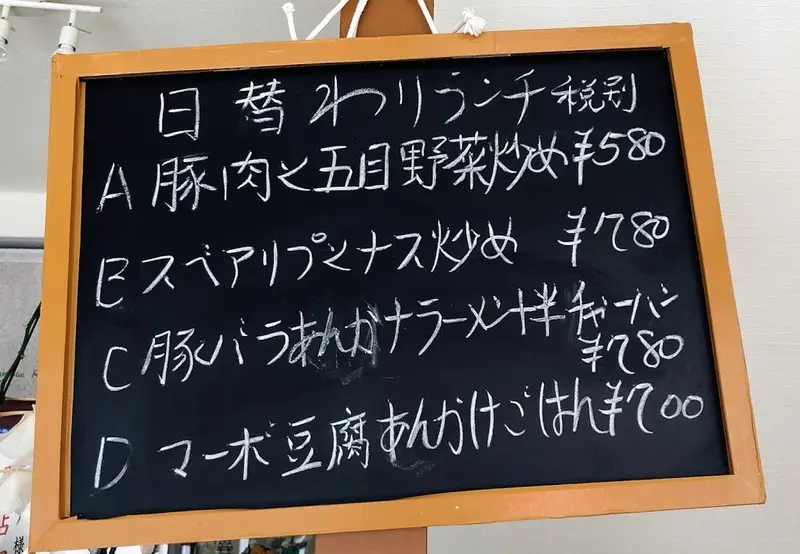 日替わりランチ 税別
A 豚肉と五目野菜炒め ¥580
B スペアリブとナス炒め ¥780
C 豚バラあんかけラーメン+半チャーハン
¥780
D マーボ豆腐あんかけごはん ¥700
様